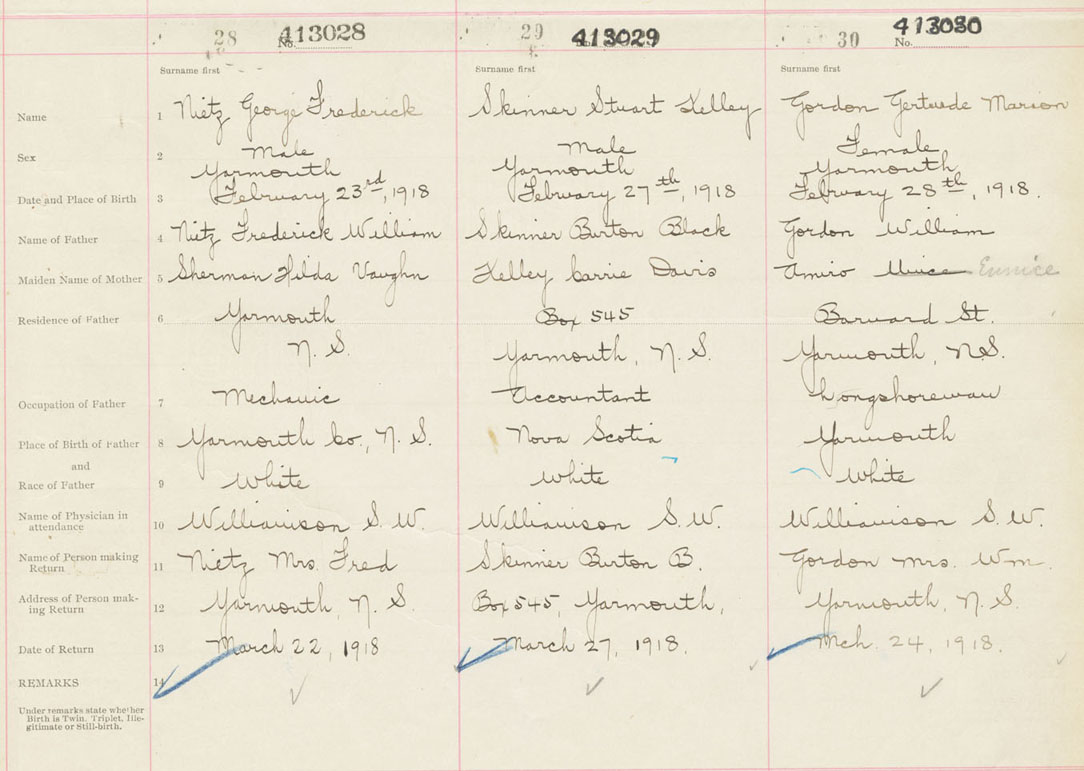 28 413028 29 413029 30 413030
No. No. No.
Surname first Surname first Surname first
Name 1 Nietz George Frederick Skinner Stuart Kelley Gordon Gertrude Marion
Sex 2 Male Male Female
Yarmouth Yarmouth Yarmouth
Date and Place of Birth 3 February 23rd, 1918 February 27th, 1918 February 28th, 1918.
Name of Father 4 Nietz Frederick William Skinner Burton Black Gordon William
Maiden Name of Mother 5 Sherman Hilda Vaughn Kelley Carrie Davis Amiro Eunice
Residence of Father 6 Yarmouth Box 545 Barnard St.
N. S. Yarmouth, N. S. Yarmouth, N.S.
Occupation of Father 7 Mechanic Accountant Longshoreman
Place of Birth of Father 8 Yarmouth Co., N. S. Nova Scotia Yarmouth
and
Race of Father 9 White White White
Name of Physician in
attendance 10 Williamson S. W. Williamson S. W. Williamson S. W.
Name of Person making
Return 11 Nietz Mrs. Fred Skinner Burton B. Gordon Mrs. Wm.
Address of Person mak-
ing Return 12 Yarmouth, N. S. Box 545, Yarmouth, Yarmouth, N. S.
Date of Return 13 March 22, 1918 March 27, 1918. Mch. 24, 1918.
REMARKS 14
Under remarks state whether
Birth is Twin, Triplet, Ille-
gitimate or Still-birth.